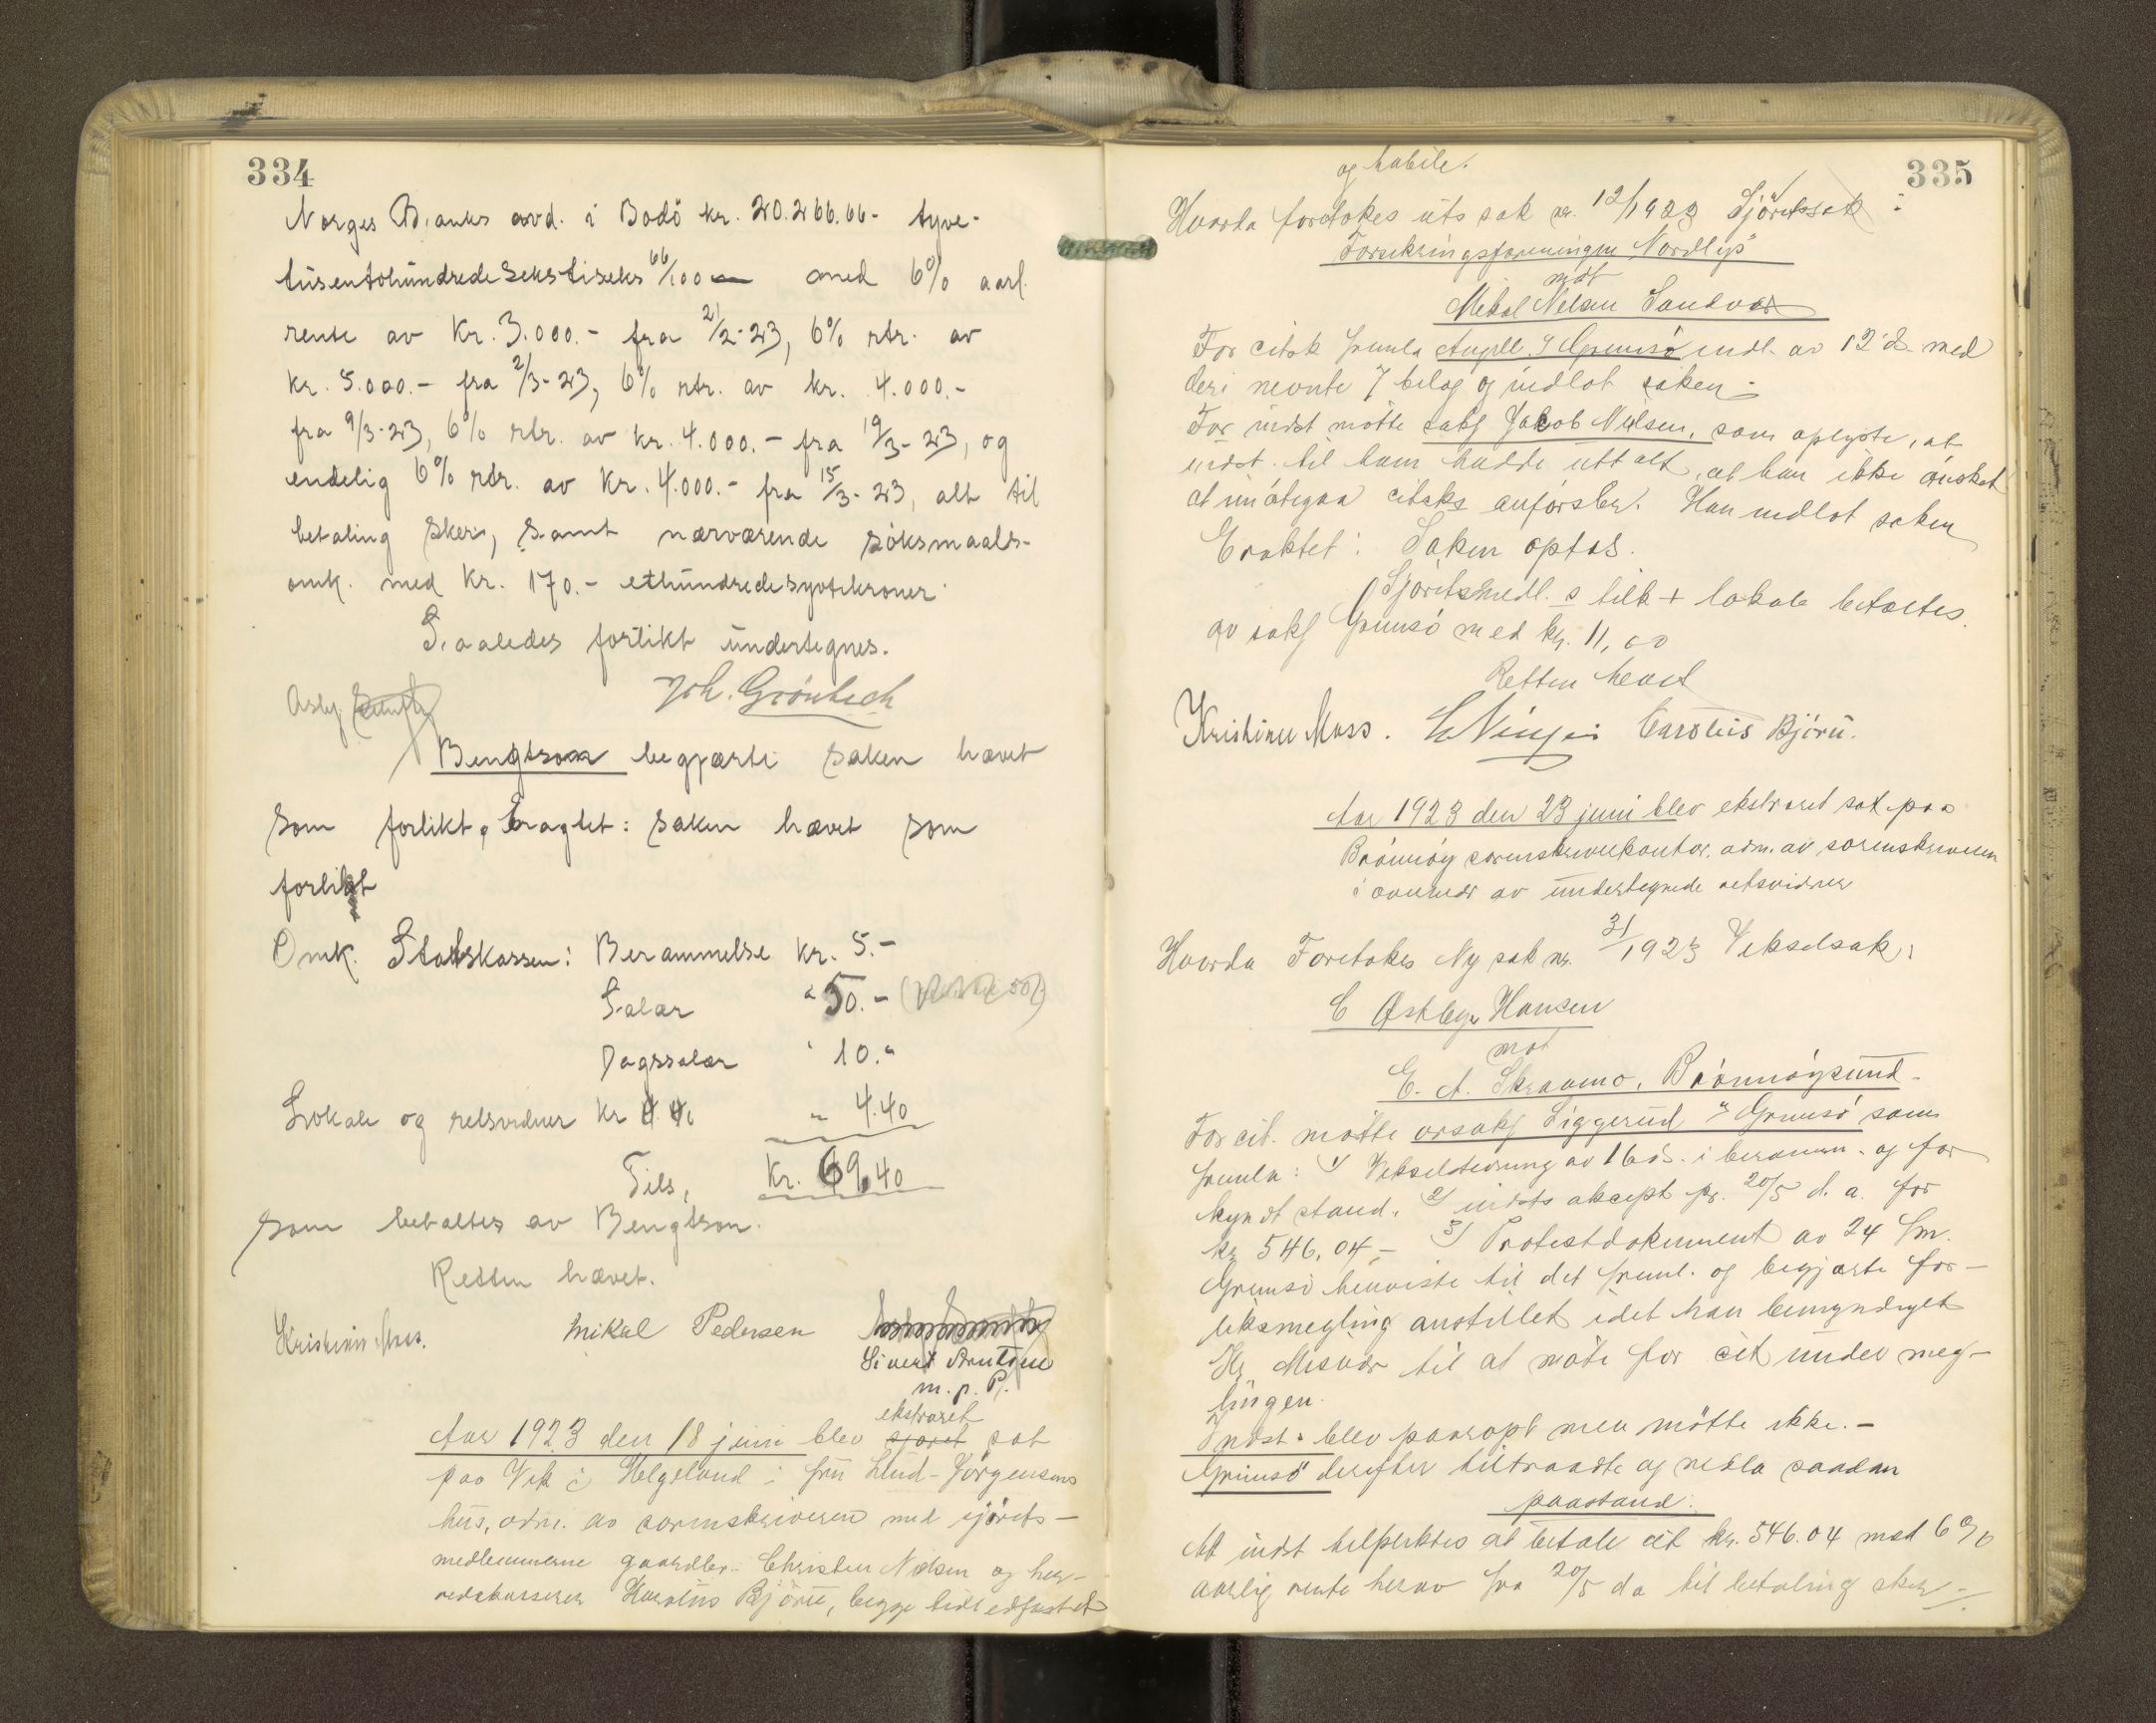 334
Norges Banks avd. i Bodö kr. 20.266.66 - tyve-
tusentohundredesekstiseks 66/100 — med 6% aarl.
rente av kr. 3.000.- fra 21/2-23, 6% rtr. av
kr. 5.000.- fra 2/3-23, 6% rtr. av kr. 4.000.-
fra 9/3-23, 6% rtr. av kr. 4.000.- fra 19/3-23, og
endelig 6% rtr. av kr. 4.000.- fra 15/3-23, alt til
betaling sker, samt nærværende söksmaals-
omk. med kr. 170.- ethundredesyttikroner.
Saaledes forlikt undertegnes.
Joh. Grönbech
Bengtson begjærte saken hævet
som forlikt, Eragtet: saken hævet som
forlikt
Omk. Statskassen: Berammelse kr. 5.-
Salær " 50.-
Dagssalær " 10.-
Lokale og retsvidner kr " 4.40
Tils, kr. 69.40
som betaltes av Bengtson.
Retten hævet.
Kristian Moss. Mikal Pedersen
Sivert
m. p. P.
ekstraret
Aar 1923 den 18 juni blev sjöret sat
paa Vik i Helgeland i fru Lund-Jörgensens
hus, adm. av sorenskriveren med sjörets-
medlemmerne gaardbr. Christen Nilsen og her-
redskasserer Karolius Björu, begge tidl edfæstet
335
og habile.
Hvorda foretokes uts sak nr. 12/1923 Sjöretssak :
Forsikringsforeningen "Nordlys"
mot
Mikal Nilsen Sandvær
For citsk fremla Grimsö indl. av 12 ds. med
deri nevnte 7 bilag og indlot saken.-
For indst mötte sakf Jakob Nilsen, som oplyste, at
indst. til ham hadde uttalt, at han ikke önsket
at imötegaa citsks anförsler. Han indlot saken
Eraktet: Saken optas.
Sjöretsmedl.s tilk + lokale betaltes
av sakf Grimsö med kr. 11,00
Retten hevet
Kristian Moss. Carolius Björu.
Aar 1923 den 23 juni blev ekstraret sat paa
Brönnöy sorenskriverkontor, adm. av sorenskriveren
i overvær av undertegnede retsvidner
Hvorda Foretokes Ny sak nr. 31/1923 Vekselsak:
C Østbye Hansen
mot
E. A. Skravmo, Brönnöysund.-
For cit. mötte orsakf Siggerud v/ Grimsö som
fremla: 1/ Vekselstevning av 16 ds. i beramm. og for
kyndt stand. 2/ indsts aksept pr. 20/5 d. a. for
kr 546,04.- 3/ Protestdokument av 24 f.m.
Grimsö henviste til det freml. og begjærte for-
liksmegling anstillet idet han bemyndiget
Hr. Misvær til at möte for cit under meg-
lingen.
Indst. blev paaropt men mötte ikke.-
Grimsö derefter tiltraadte og nedla saadan
paastand:
At indst tilpliktes at betale cit kr. 546.04 med 6%
aarlig rente herav fra 20/5 da til betaling sker.-